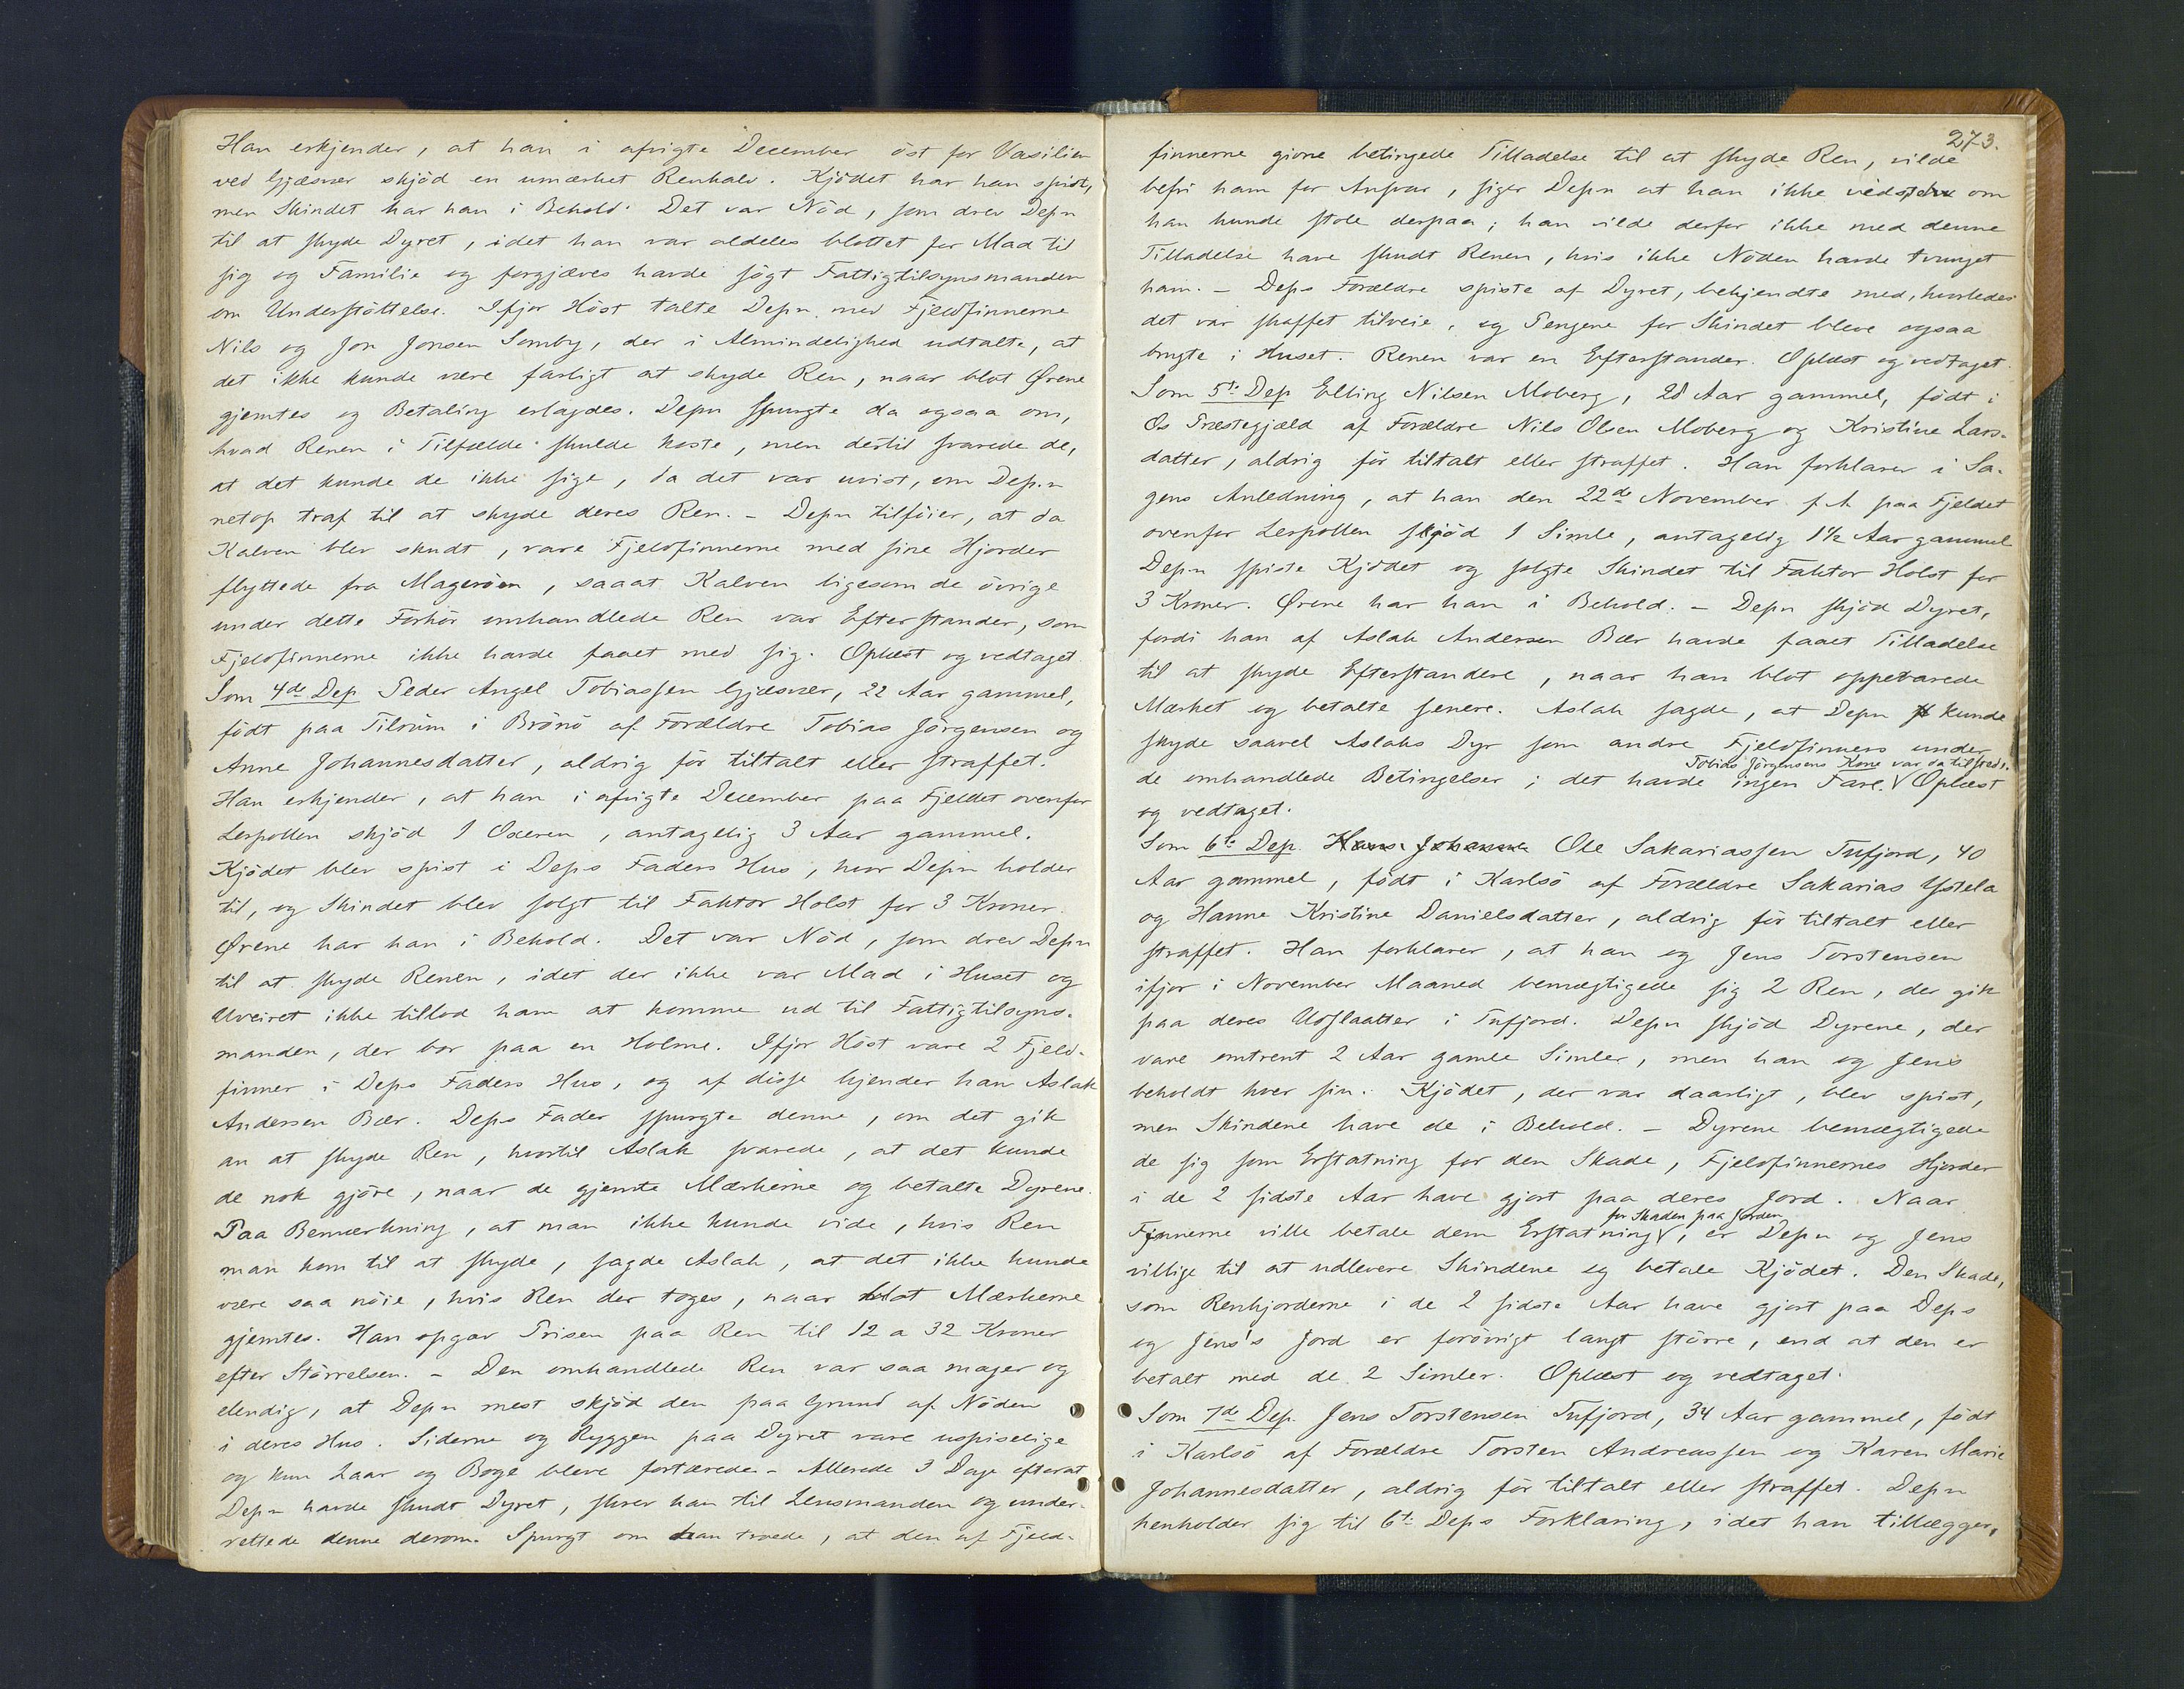 Han erkjender, at han i afvigte December öst for Vasilien
ved Gjæsvær skjöd en umærket Renkalv. Kjödet har han spist,
men Skindet har han i Behold. Det var Nöd, som drev Depn
til at skyde Dyret, idet han var aldeles blottet for Mad til
sig og Familie og forgjæves havde sögt Fattigtilsynsmanden
om Understöttelse. Ifjor Höst talte Depn. med Fjeldfinnerne
Nils og Jon Jonsen Somby, der i Almindelighed udtalte, at
det ikke kunde være farligt at skyde Ren, naar blot Ørene
gjemtes og Betaling erlagdes. Depn spurgte da ogsaa om,
hvad Renen i Tilfælde skulde koste, men dertil svarede de,
at det kunde de ikke sige, da det var uvist, om Dep.n
netop traf til at skyde deres Ren. - Depn tilföier, at da
Kalven blev skudt, vare Fjeldfinnerne med sine Hjorder
flyttede fra Mageröen, saaat Kalven ligesom de övrige
under dette Forhör omhandlede Ren var Efterstander, som
Fjeldfinnerne ikke havde faaet med sig. Oplæst og vedtaget.
Som 4de Dep Peder Angel Tobiassen Gjæsvær, 22 Aar gammel,
födt paa Tilrüm i Brönö af Forældre Tobias Jörgensen og
Anne Johannesdatter, aldrig för tiltalt eller straffet.
Han erkjender, at han i afvigte December paa Fjeldet ovenfor
Lerpollen skjöd 1 Oxeren, antagelig 3 Aar gammel.
Kjödet blev spist i Deps Faders Hus, hvor Depn holder
til, og Skindet blev solgt til Faktor Holst for 3 Kroner.
Ørene har han i Behold. Det var Nöd, som drev Depn
til at skyde Renen, idet der ikke var Mad i Huset og
Uveiret ikke tillod ham at komme ud til Fattigtilsyns-
manden, der bor paa en Holme. Ifjor Höst vare 2 Fjeld-
finner i Deps Faders Hus, og af disse kjender han Aslak
Andersen Bær. Deps Fader spurgte denne, om det gik
an at skyde Ren, hvortil Aslak svarede, at det kunde
de nok gjöre, naar de gjemte Mærkerne og betalte Dyrene.
Paa Bemærkning, at man ikke kunde vide, hvis Ren
man kom til at skyde, sagde Aslak, at det ikke kunde
være saa nöie, hvis Ren der toges, naar blot Mærkerne
gjemtes. Han opgav Prisen paa Ren til 12 a 32 Kroner
efter Störrelsen. - Den omhandlede Ren var saa mager og
elendig, at Depn mest skjöd den paa Grund af Nöden
i deres Hus. Siderne og Ryggen paa Dyret vare uspiselige
og kun Laar og Boge bleve fortærede. - Allerede 3 Dage efterat
Depn havde skudt Dyret, skrev han til Lensmanden og under-
rettede denne derom. Spurgt om han troede, at den af Fjeld-
273.
finnerne givne betingede Tilladelse til at skyde Ren, vilde
befri ham for Ansvar, siger Depn at han ikke vidste om
han kunde stole derpaa; han vilde derfor ikke med denne
Tilladelse have skudt Renen, hvis ikke Nöden havde tvunget
ham. - Deps Forældre spiste af Dyret, bekjendte med, hvorledes
det var skaffet tilveie, og Pengene for Skindet bleve ogsaa
brugte i Huset. Renen var en Efterstander. Oplæst og vedtaget.
Som 5te Dep Elling Nilsen Moberg, 28 Aar gammel, födt i
Os Præstegjæld af Forældre Nils Olsen Moberg og Kristine Lars-
datter, aldrig för tiltalt eller straffet. Han forklarer i Sa-
gens Anledning, at han den 22de November f. A paa Fjeldet
ovenfor Lerpollen skjöd 1 Simle, antagelig 1½ Aar gammel
Depn spiste Kjödet og solgte Skindet til Faktor Holst for
3 Kroner. Ørene har han i Behold. - Depn skjöd Dyret,
fordi han af Aslak Andersen Bær havde faaet Tilladelse
til at skyde Efterstandere, naar han blot oppevarede
Mærket og betalte senere. Aslak sagde, at Depn kunde
skyde saavel Aslaks Dyr som andre Fjeldfinners under
Tobias Jörgensens Kone var da tilstede.
de omhandlede Betingelser; det havde ingen Fare. V Oplæst
og vedtaget.
Som 6te Dep. Hans Johanne Ole Sakariassen Tufjord, 40
Aar gammel, födt i Karlsö af Forældre Sakarias
og Hanne Kristine Danielsdatter, aldrig för tiltalt eller
straffet. Han forklarer, at han og Jens Torstensen
ifjor i November Maaned bemægtigede sig 2 Ren, der gik
paa deres Udslaatter i Tufjord. Depn skjöd Dyrene, der
vare omtrent 2 Aar gamle Simler, men han og Jens
beholdt hver sin. Kjödet, der var daarligt, blev spist,
men Skindene have de i Behold. - Dyrene bemægtigede
de sig som Erstatning for den Skade, Fjeldfinnernes Hjorder
i de 2 sidste Aar have gjort paa deres Jord. Naar
for Skaden paa Jorden
Finnerne ville betale dem Erstatning V, er Depn og Jens
villige til at udlevere Skindene og betale Kjödet. Den Skade,
som Renhjorderne i de 2 sidste Aar have gjort paa Deps
og Jens's Jord er forövrigt langt större, end at den er
betalt med de 2 Simler. Oplæst og vedtaget.
Som 7de Dep. Jens Torstensen Tufjord, 34 Aar gammel, födt
i Karlsö af Forældre Torsten Andreassen og Karen Marie
Johannesdatter, aldrig för tiltalt eller straffet. Depn
henholder sig til 6te Deps Forklaring, idet han tillægger,